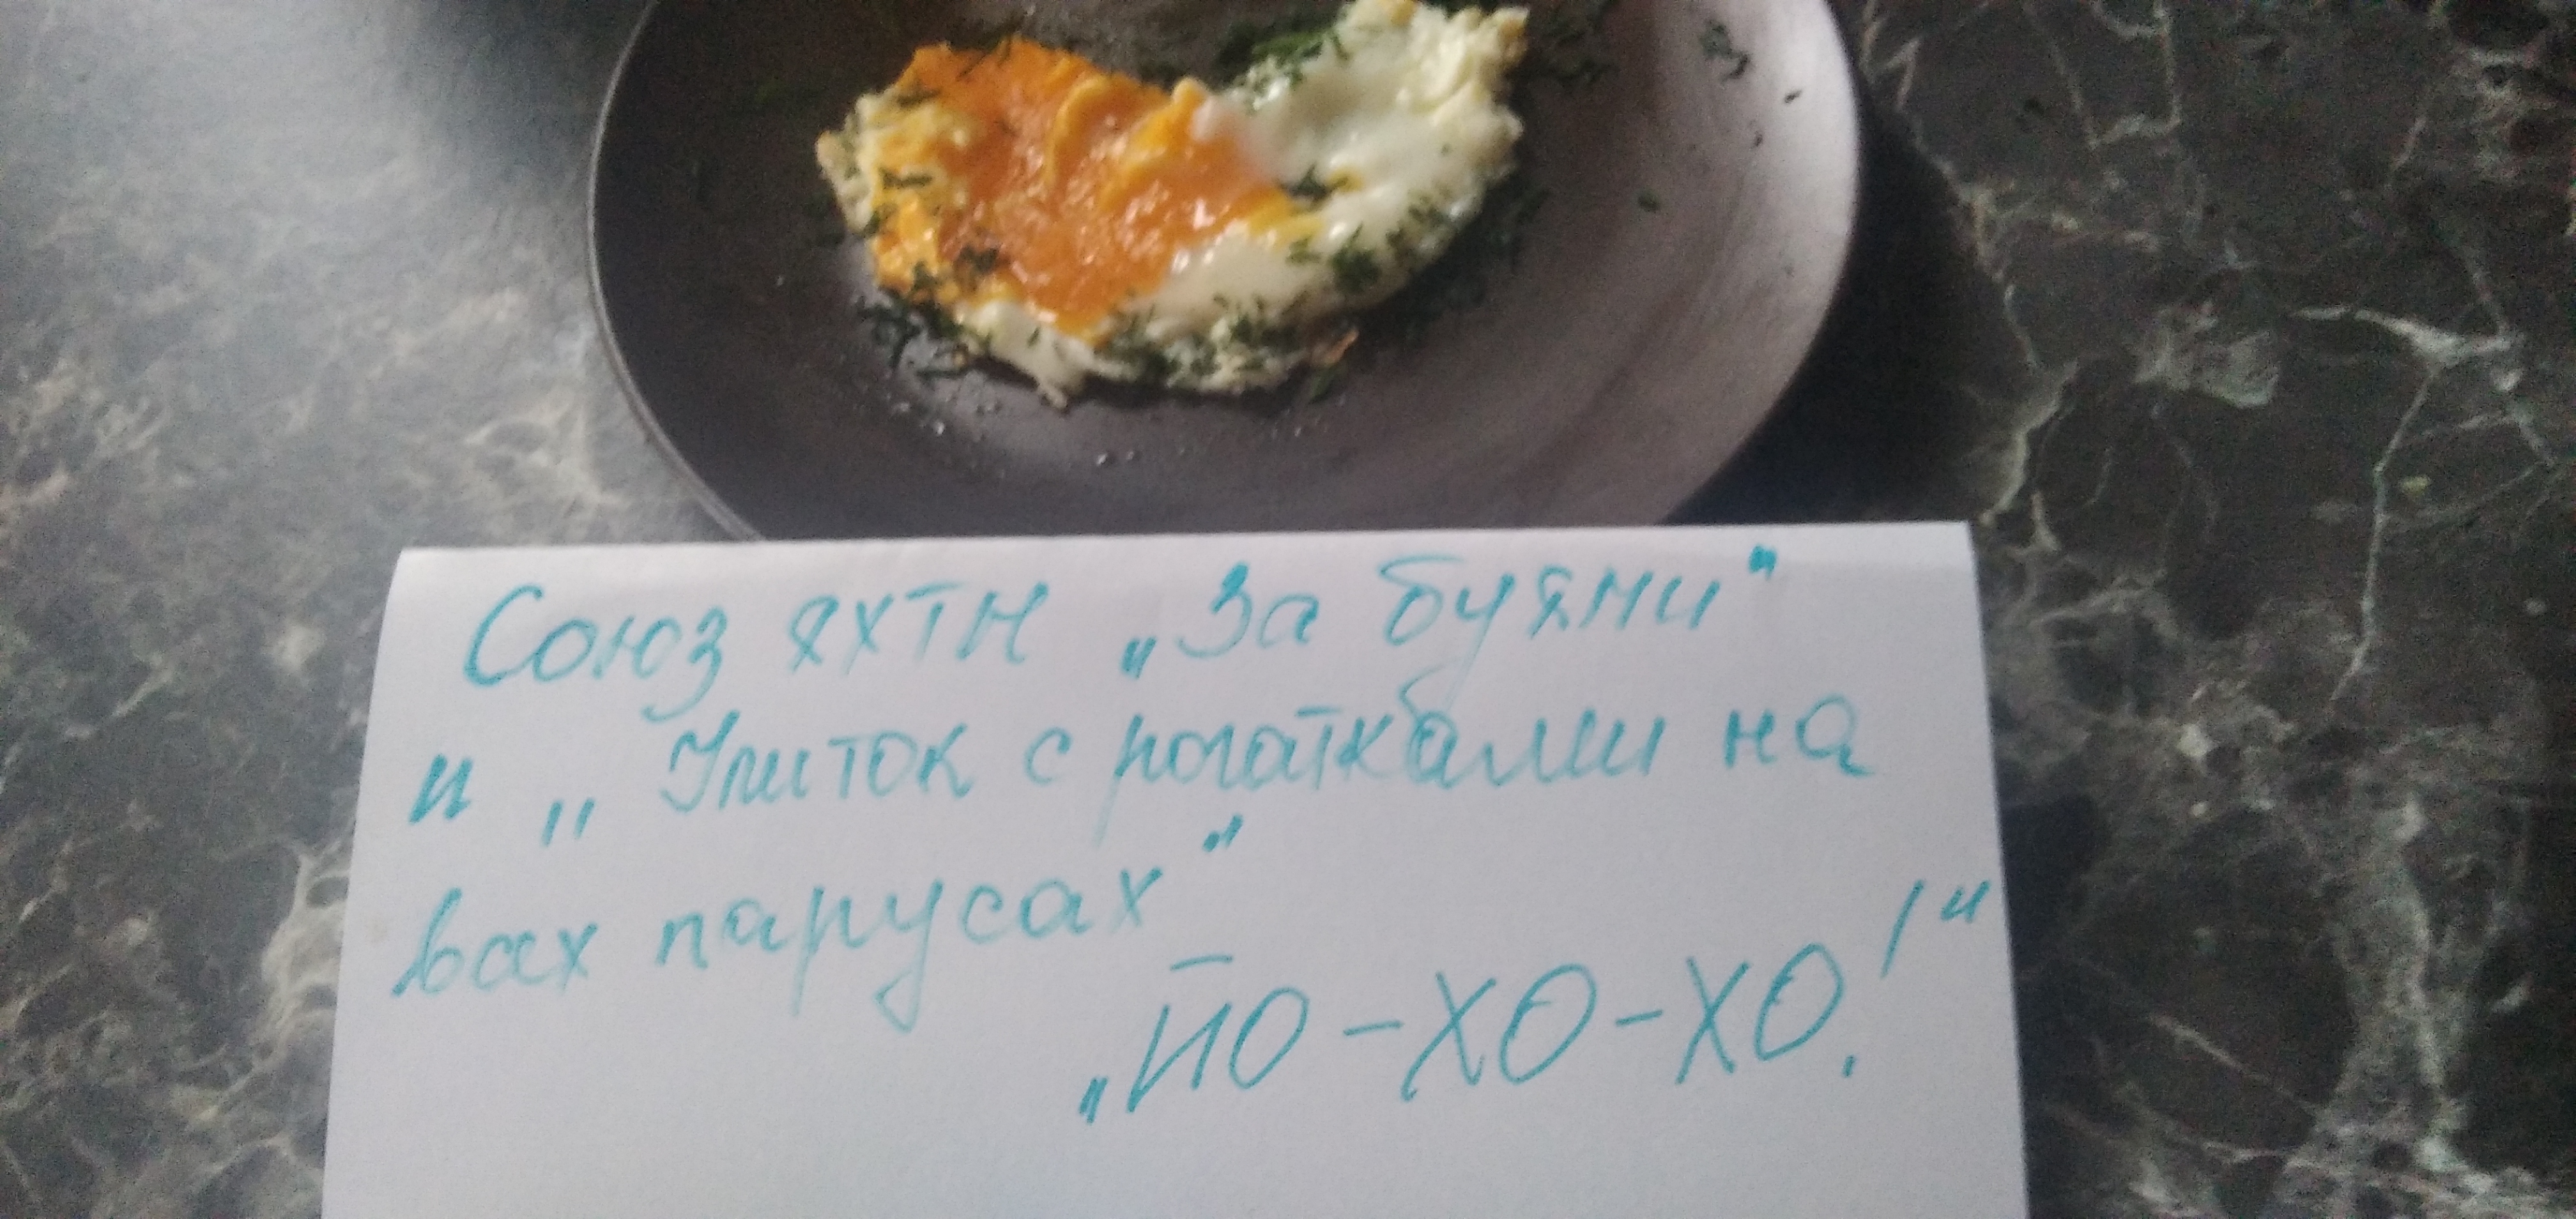 Союз яхтн „За буями"
и „Улиток с рогатками на
вах парусах"
„ЙО-ХО-ХО!"